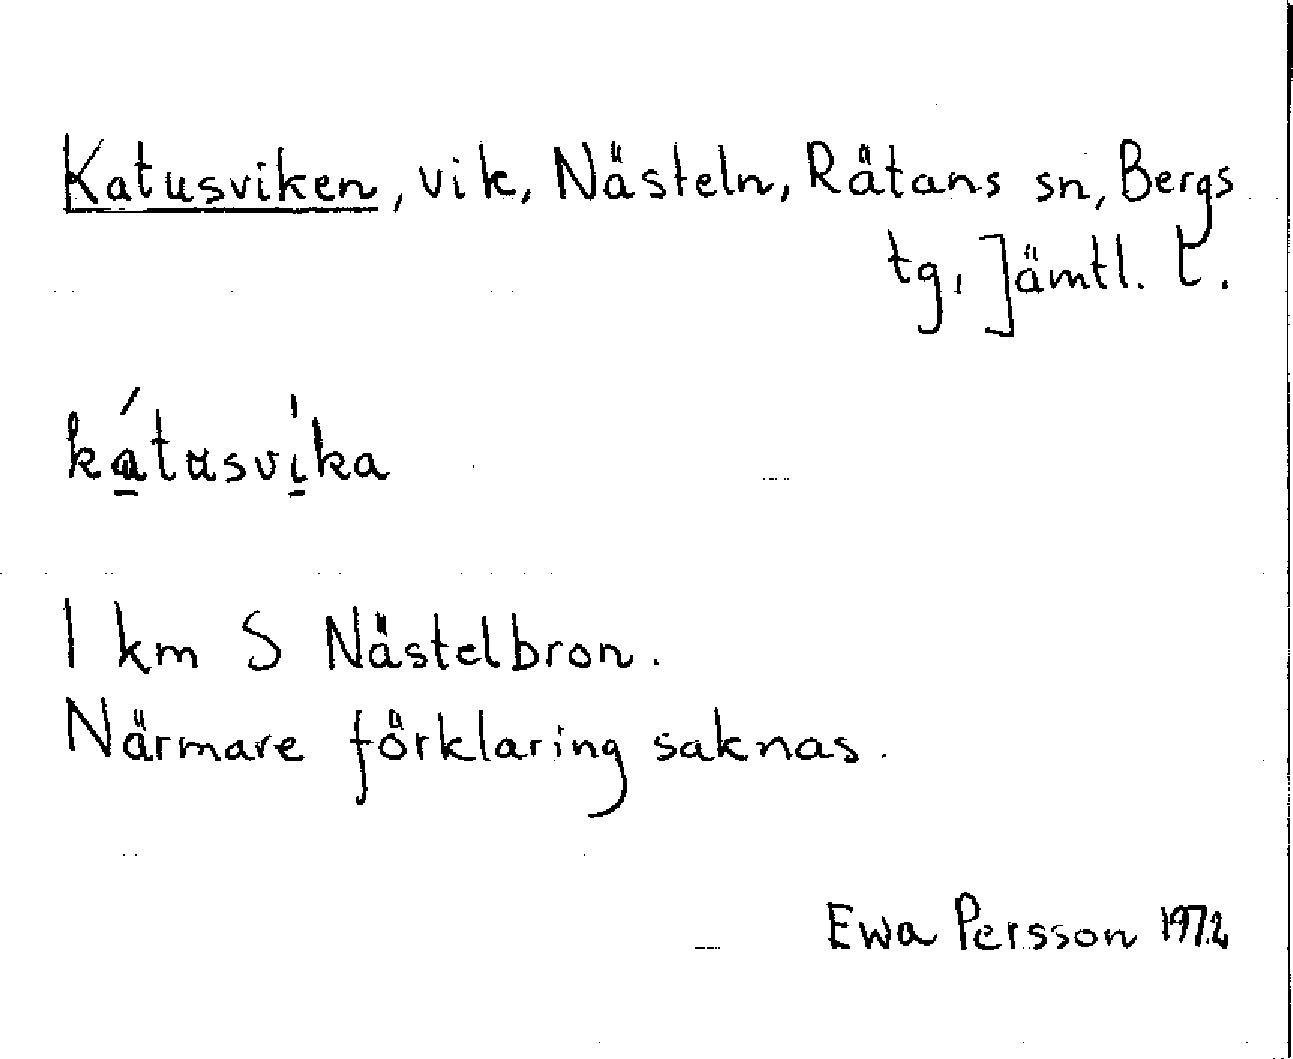 Katusviken, vik, Nästeln, Rätans sn, Bergs
tg, Jämtl. l.
kátusvika
1 km S Nästelbron.
Närmare förklaring saknas.
Ewa Persson 1972